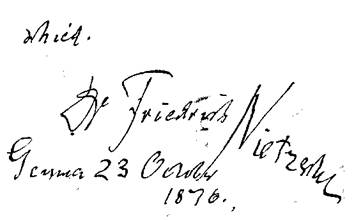 Dr Friedrich Nietzsche
Genua 23 October
1876.